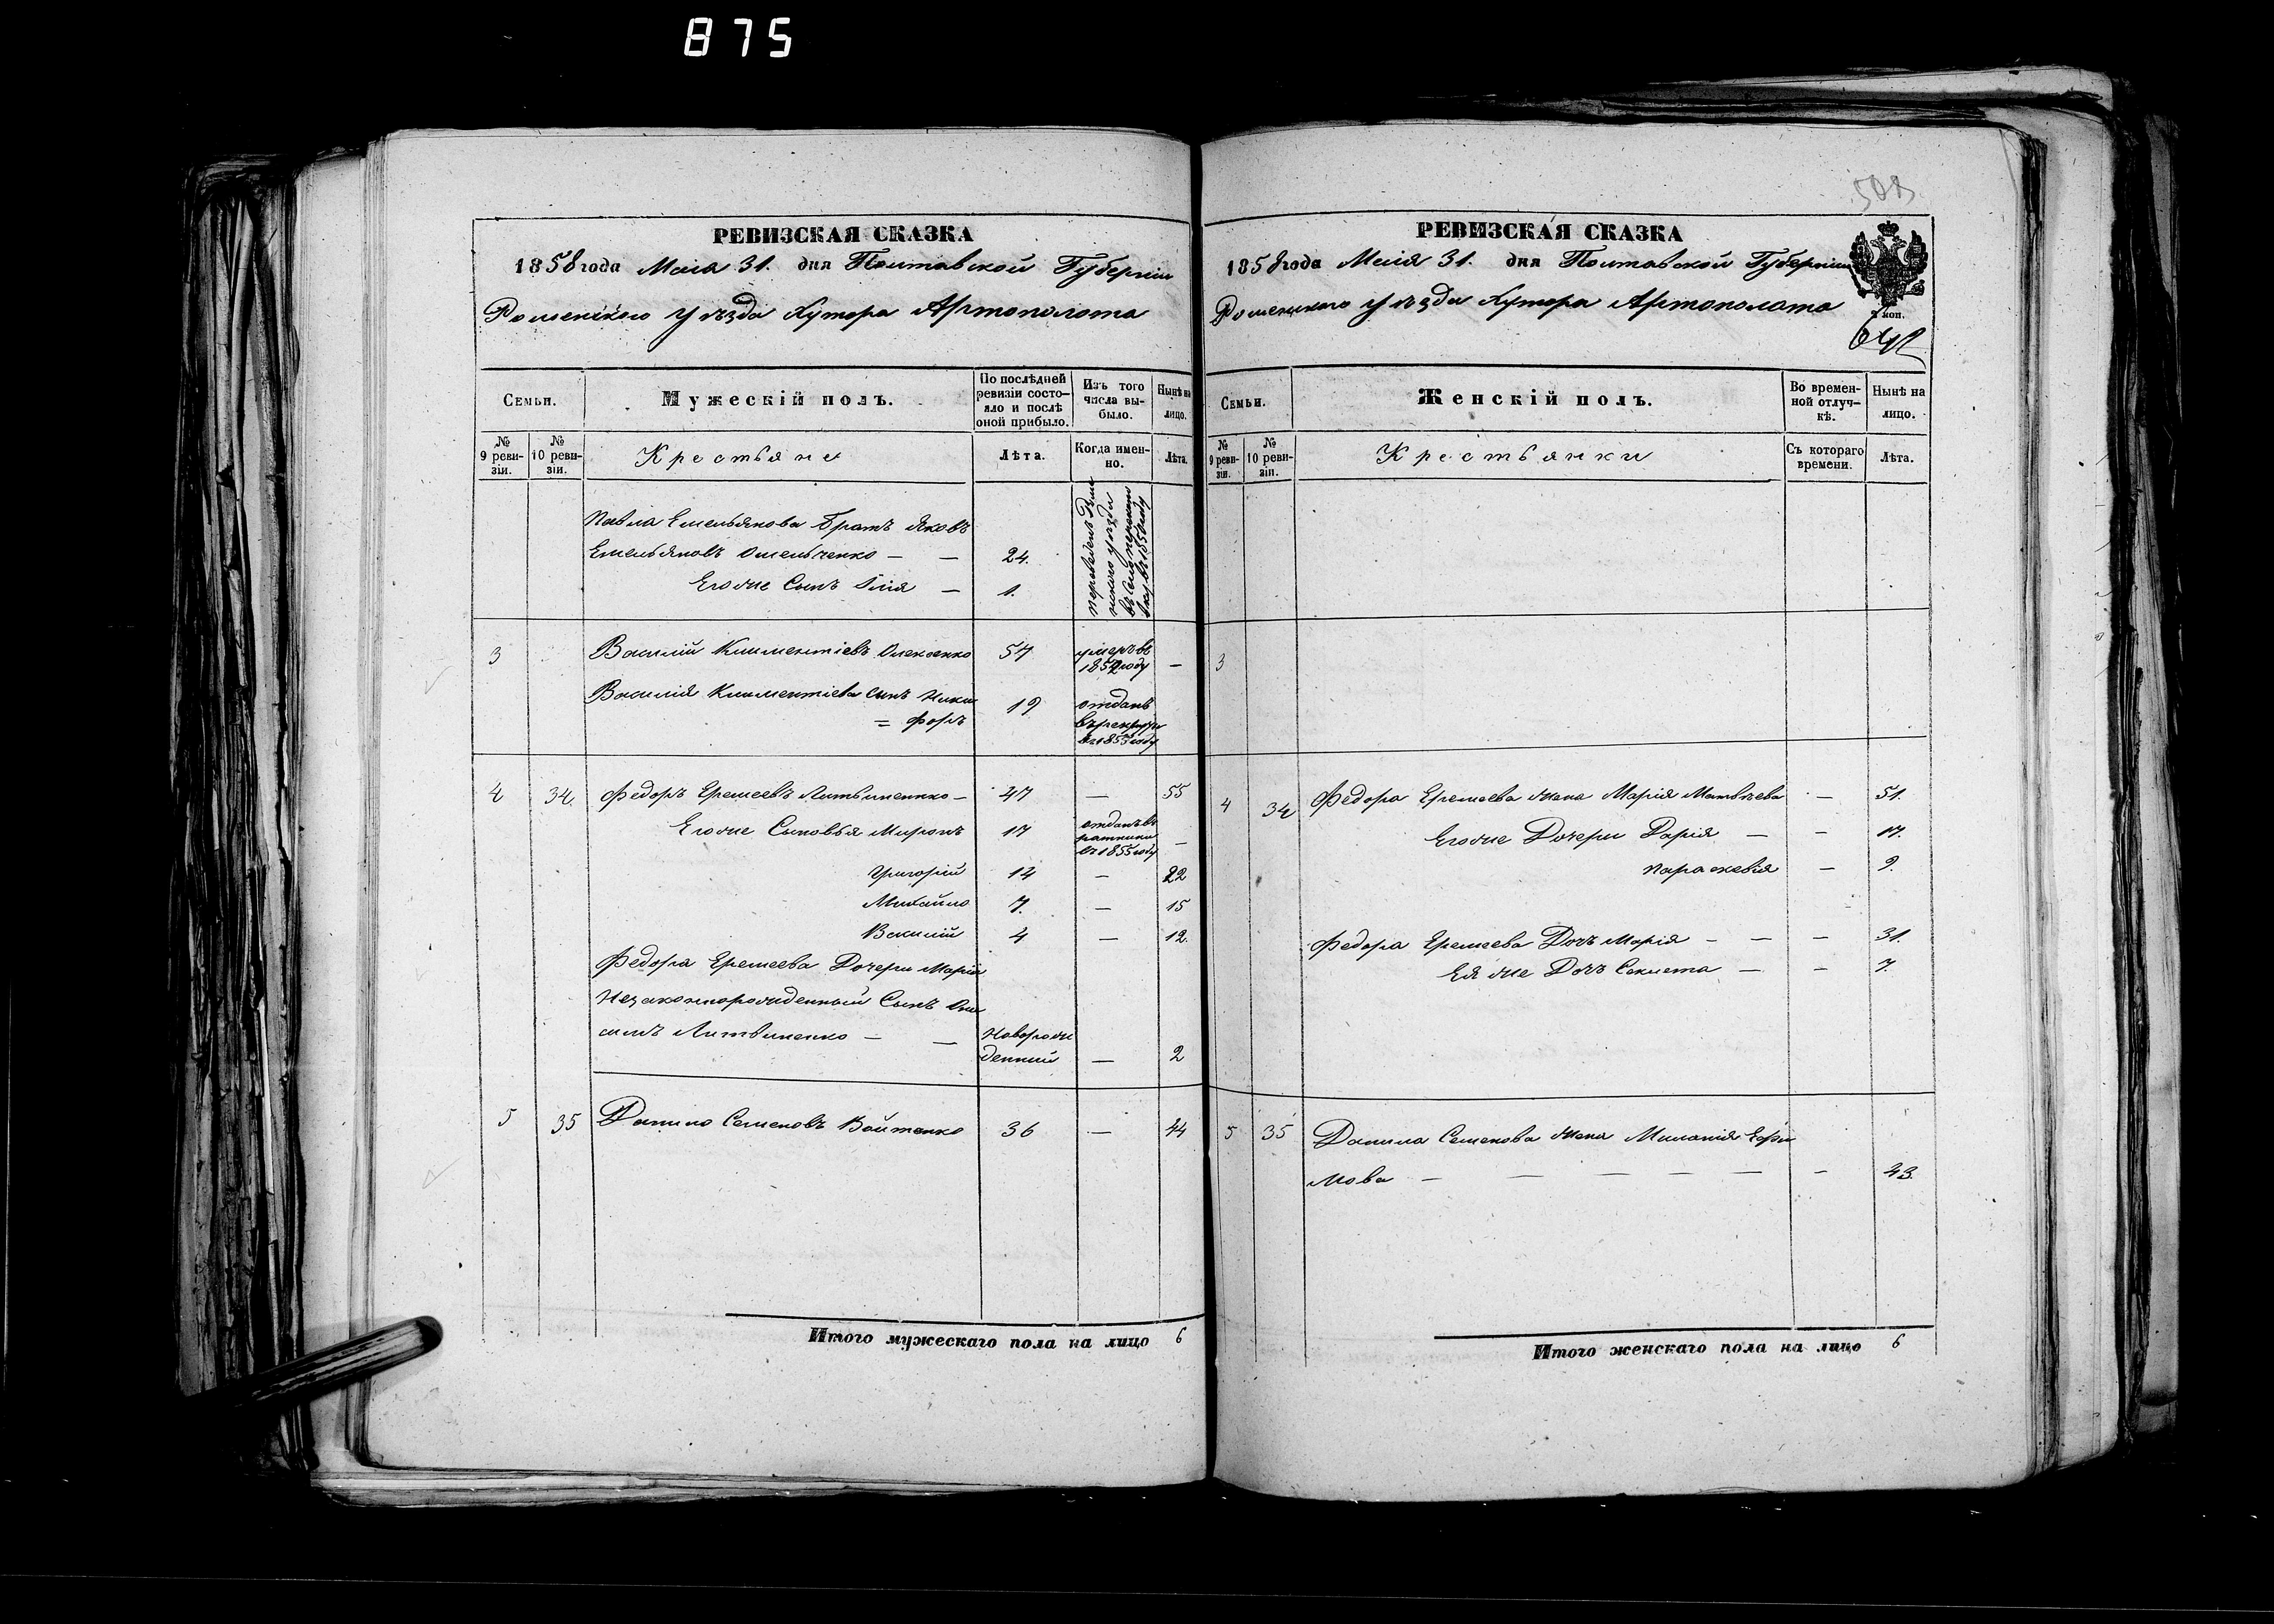 875
508
РЕВИЗСКАЯ СКАЗКА
1858 года Маія 31. дня Полтавской Губерніи
Роменскаго уѣзда Хутора Артополота
Семьи.
Мужескій полъ.
По послѣдней ревизіи состояло и послѣ оной прибыло.
Изъ того числа выбыло.
Нынѣ на лицо.
№ 9 ревизіи.
№ 10 ревизіи.
Крестьяне
Лѣта.
Когда именно.
Лѣта.
Павла Емельянова братъ Яковъ
Емельяновъ Омельченко — — 24.
Егоже Сынъ Илія — 1.
3 Василій Климентіевъ 57 умеръ въ —
1852 году
Василія Климентіева сынъ Ники 19 отданъ
= форъ в рекруты
въ 1855 году
4 34. Федоръ Еремеевъ Литвиненко — 47 — 55
Егоже Сыновья Миронъ 17 отданъ въ —
ратники
въ 1855 году
Григорій 14 — 22
Михайло 7. — 15
Василій 4 — 12.
Федора Еремеева Дочери Маріи
Незаконнорожденный Сынъ Они
симъ Литвиненко — — Новорож
денный — 2
5 35 Данило Семеновъ Войтенко 36 — 44
Итого мужескаго пола на лицо 6
РЕВИЗСКАЯ СКАЗКА
1858 года Маія 31. дня Полтавской Губерніи
Роменскаго уѣзда Хутора Артополота
коп.
Семьи.
Женскій полъ.
Во временной отлучкѣ.
Нынѣ на лицо.
№ 9 ревизіи.
№ 10 ревизіи.
Крестьянки
Съ котораго времени.
Лѣта.
3
4 34 Федора Еремеева жена Марія Матвѣева — 51.
Егоже Дочери Дарія — — 17.
Параскевія — 9.
Федора Еремеева Дочъ Марія — — — 31.
Ея же Дочъ — — 7.
5 35 Данила Семенова жена Миланія Ефи
мова — — — — — — 43.
Итого женскаго пола на лицо 6